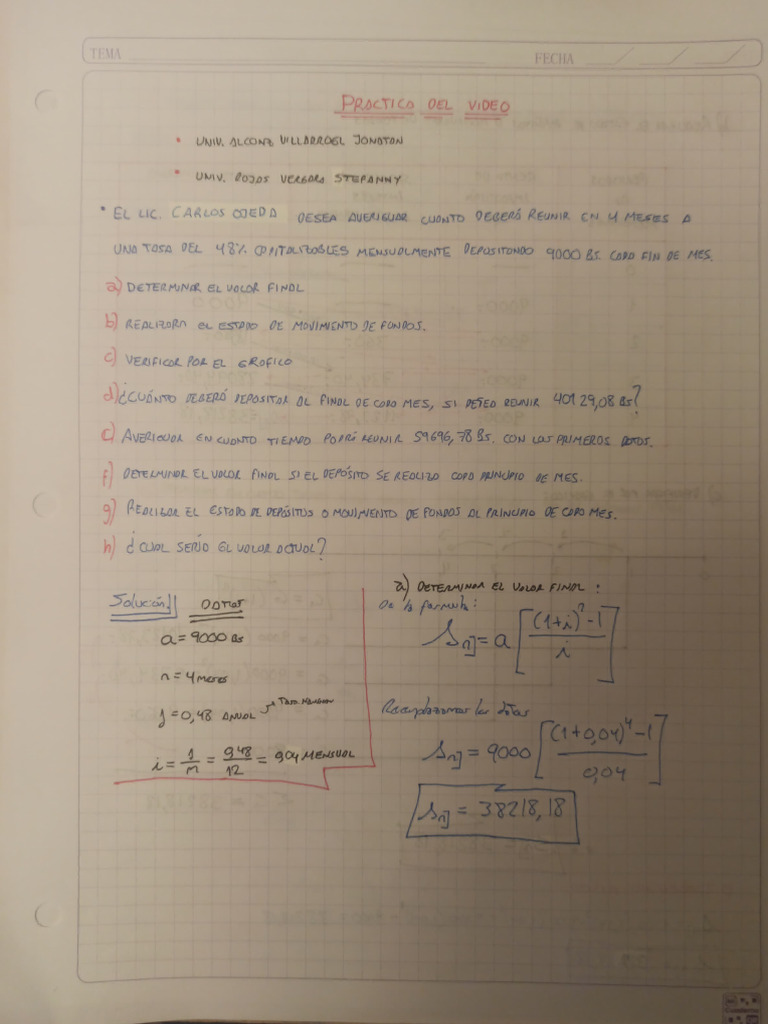 TEMA
FECHA
PRACTICO DEL VIDEO
• UNIV. ALCONZ VILLARROEL JONATAN
• UNIV. ROJAS VERGARA STEPANNY
• EL LIC. CARLOS OJEDA DESEA AVERIGUAR CUANTO DEBERÁ REUNIR EN 4 MESES A
UNA TASA DEL 48% CAPITALIZABLES MENSUALMENTE DEPOSITANDO 9000 BS. CADA FIN DE MES.
a) DETERMINAR EL VALOR FINAL
b) REALIZARA EL ESTADO DE MOVIMIENTO DE FUNDOS.
c) VERIFICAR POR EL GRAFICO
d) ¿CUÁNTO DEBERÁ DEPOSITAR AL FINAL DE CADA MES, SI DESEA REUNIR 40129,08 BS?
e) AVERIGUAR EN CUANTO TIEMPO PODRÁ REUNIR 59696,78 BS. CON LOS PRIMEROS DATOS.
f) DETERMINAR EL VALOR FINAL SI EL DEPÓSITO SE REALIZA CADA PRINCIPIO DE MES.
g) REALIZAR EL ESTADO DE DEPÓSITOS O MOVIMIENTO DE FONDOS AL PRINCIPIO DE CADA MES.
h) ¿CUAL SERIA EL VALOR ACTUAL?
Solución DATOS
a = 9000 Bs
n = 4 meses
j = 0,48 ANUAL → TASA NOMINAL
i = j/m = 0,48/12 = 0,04 MENSUAL
a) DETERMINAR EL VALOR FINAL :
De la formula:
Sn] = a [((1+i)ⁿ-1)/i]
Reemplazamos los datos
Sn] = 9000 [((1+0,04)⁴-1)/0,04]
Sn] = 38218,18